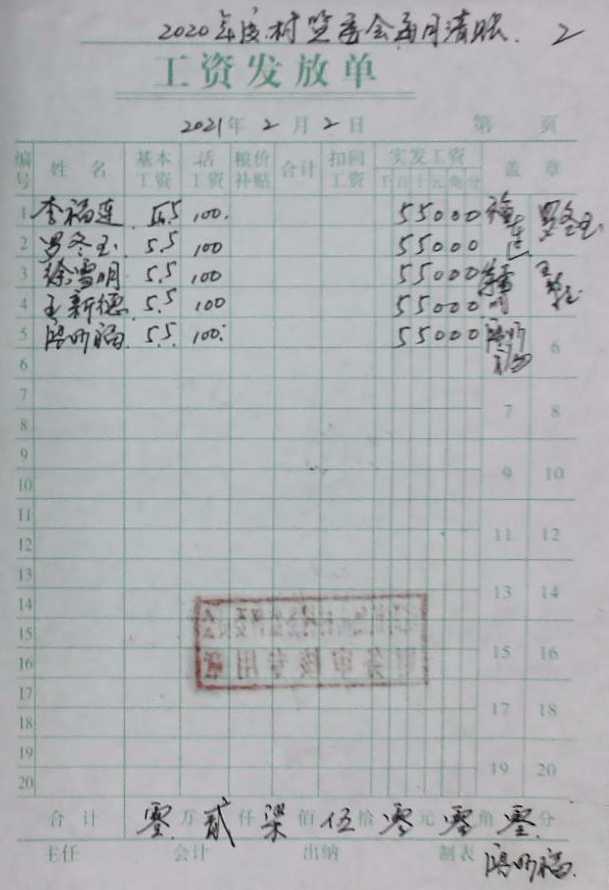 2020年度村监委会每月清账. 2
工资发放单
2021年2月2日 第 页
编号 姓名 基本工资 活工资 粮价补贴 合计 扣回工资 实发工资 千百十元角分 盖章
1 李福莲 5.5 100. 55000 福莲 罗冬玉
2 罗冬玉. 5.5 100 55000
3 徐雪明 5.5 100 55000 徐雪明
4 王新德. 5.5 100 55000
5 5.5 100. 55000 6
6
7 7 8
8
9
10 9 10
11
12 11 12
13
14 13 14
15
16 15 16
财务审核专用章
17
18 17 18
19
20 19 20
合计 零万贰仟柒佰伍拾零元零角零分
主任 会计 出纳 制表